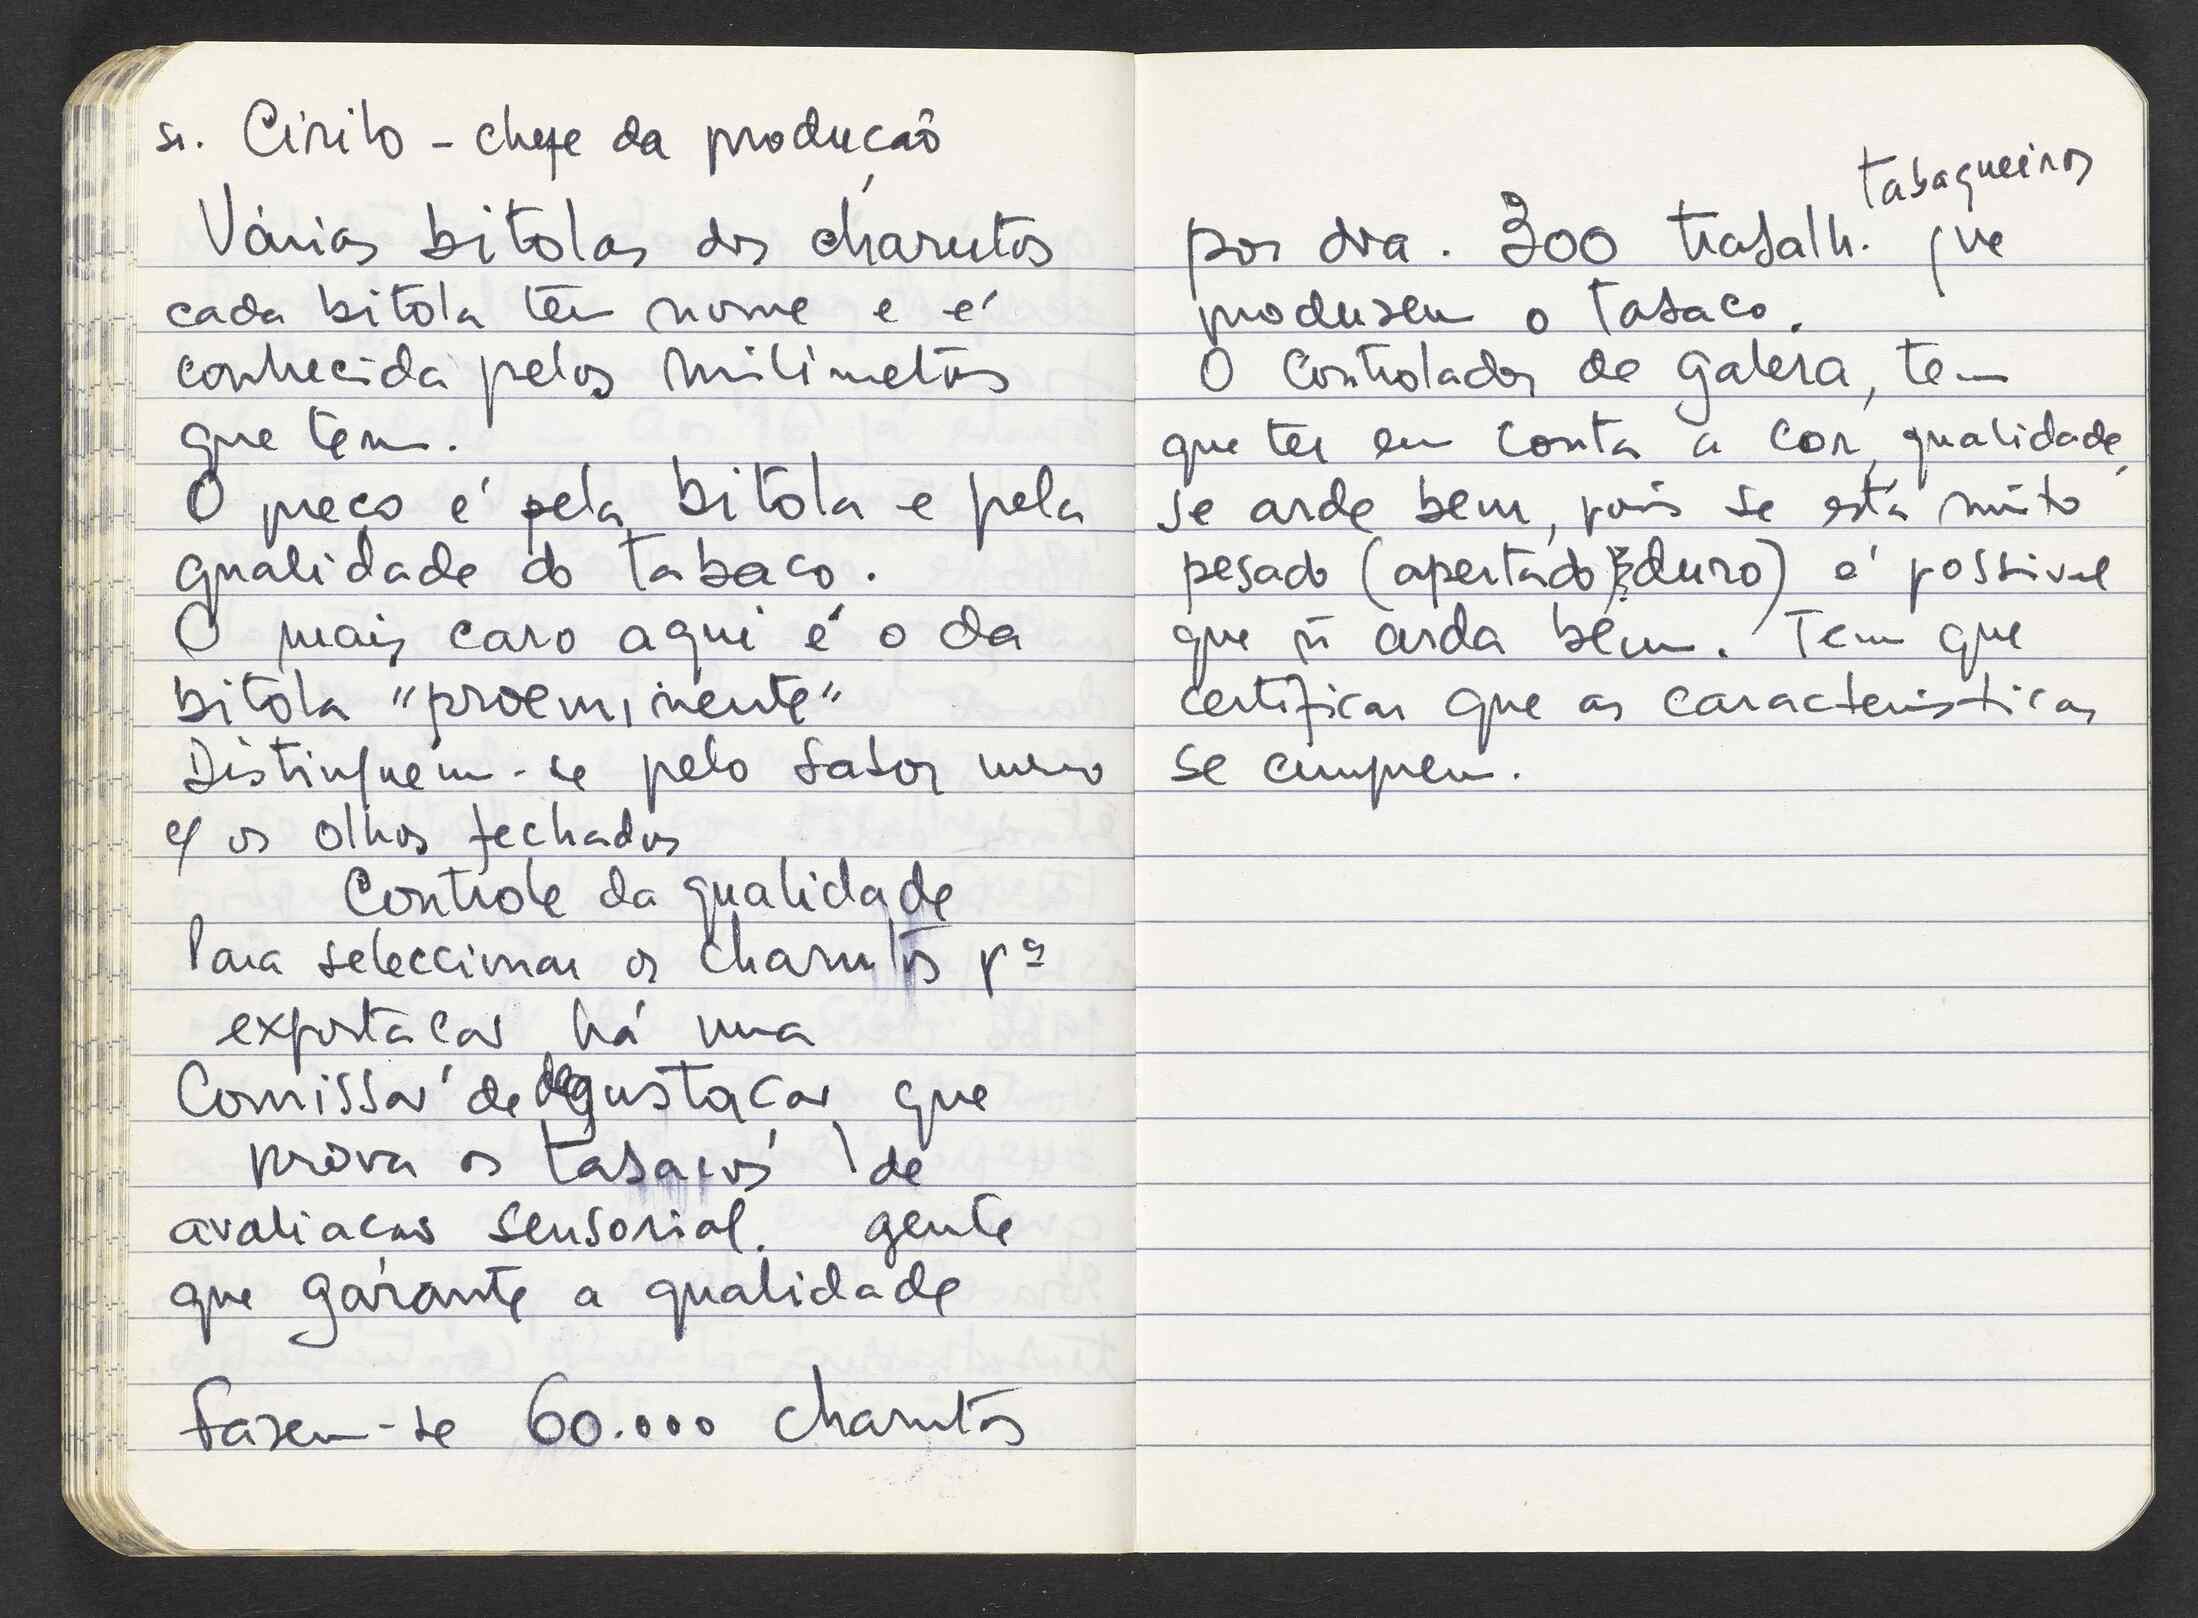 sr. Cirilo - chefe da produção
Várias bitolas dos charutos
cada bitola tem nome e é
conhecida pelos milimetros
que tem.
O preço é pela bitola e pela
qualidade do tabaco.
O mais caro aqui é o da
bitola "proeminente"
Distinguem-se pelo sabor mesmo
c/ os olhos fechados
Controle da qualidade
Para seleccionar os charutos pª
exportação há uma
Comissão de degustação que
prova os tabacos de
avaliação sensorial. gente
que garante a qualidade
Fazem-se 60.000 charutos
tabaqueiros
por dia. 300 trabalh. que
produzem o tabaco.
O Controlador de galera, tem
que ter em conta a cor, qualidade,
se arde bem, pois se está muito
pesado (apertado duro) é possivel
que ñ arda bem. Tem que
certificar que as caracteristicas
se cumprem.